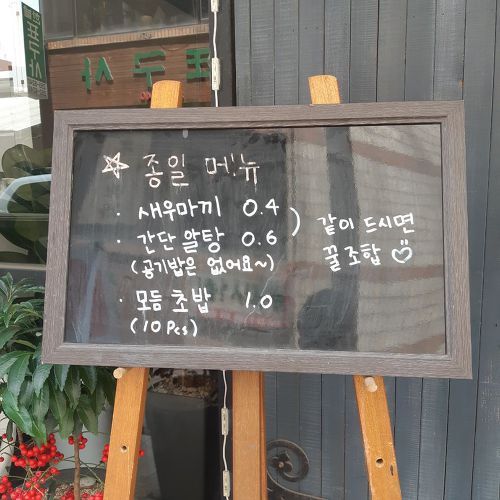 ☆ 종일 메뉴
· 새우마끼 0.4
· 간단 알탕 0.6
(공기밥은 없어요~)
) 같이 드시면
꿀조합 ♡
· 모듬 초밥 1.0
(10 Pcs)